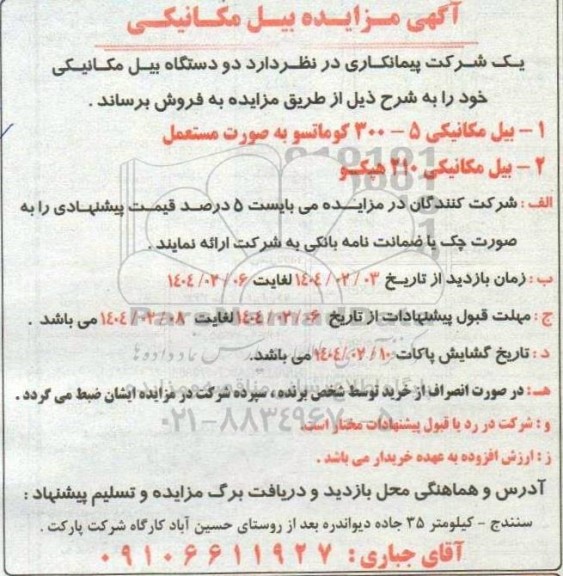 آگهی مـزایـده بیـل مکـانیکـی
یـک شـرکت پیمانکاری در نظـردارد دو دستگاه بیـل مکـانیـکی
خـود را به شـرح ذیل از طریق مزایده به فروش برساند .
۱ – بیل مکانیکی ۵ – ۳۰۰ کوماتسو به صورت مستعمل
۲ – بیل مکانیکی ۲۱۰ هپکـو
الف : شرکت کنندگان در مزایـده می بایست ۵ درصـد قیمـت پیشنهـادی را به
صورت چک یا ضمانت نامه بانکی به شرکت ارائه نمایند .
ب : زمان بازدید از تاریـخ ۱۴۰۴/۰۲/۰۳ لغایت ۱۴۰۴/۰۲/۰۶
ج : مهلت قبول پیشنهادات از تاریخ ۱۴۰۴/۰۲/۰۶ لغایت ۱۴۰۴/۰۲/۰۸ می باشد .
د : تاریخ گشایش پاکات ۱۴۰۴/۰۲/۱۰ می باشد.
هـ : در صورت انصراف از خرید توسط شخص برنده ، سپرده شرکت در مزایده ایشان ضبط می گردد .
و : شرکت در رد یا قبول پیشنهادات مختار است.
ز : ارزش افزوده به عهده خریدار می باشد .
آدرس و هماهنگی محل بازدید و دریافت برگ مزایده و تسلیم پیشنهاد :
سنندج – کیلومتر ۳۵ جاده دیواندره بعد از روستای حسین آباد کارگاه شرکت پارکت .
آقای جباری : ۰۹۱۰۶۶۱۱۹۲۷
۰۲۱-۸۸۳۴۹۶۷۰-۵